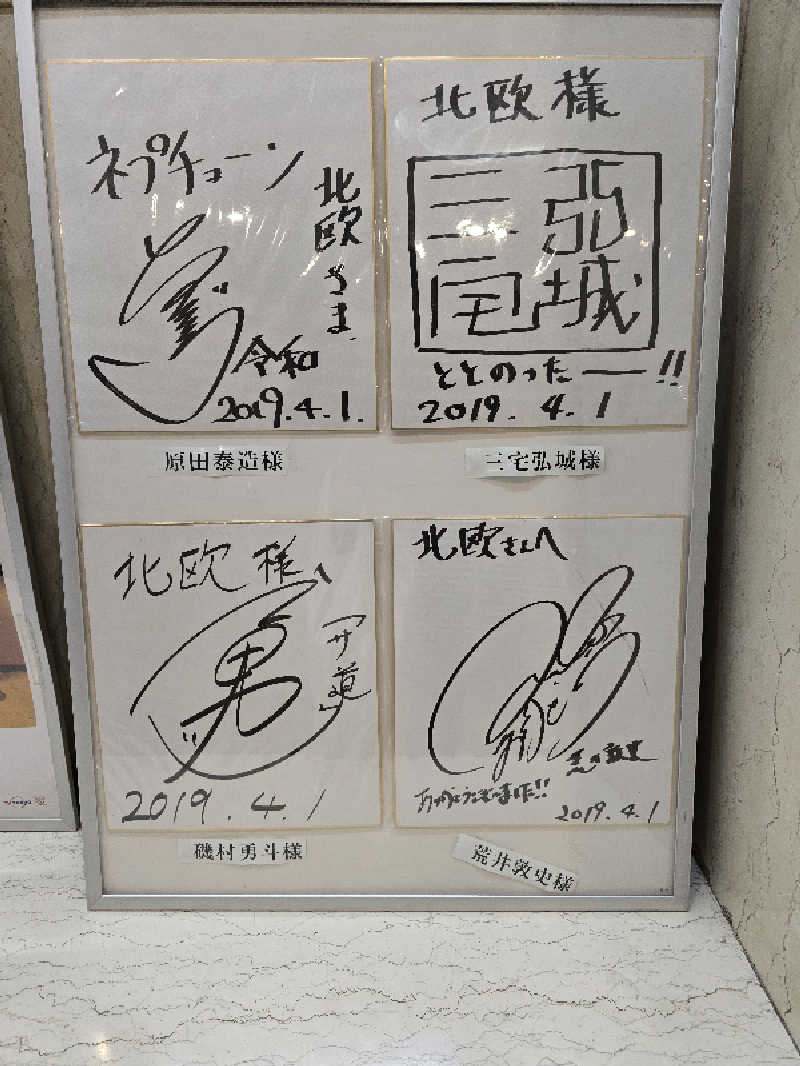 ネプチューン
北欧さま
令和
2019.4.1.
原田泰造様
北欧様
三宅弘城
ととのったー!!
2019.4.1
三宅弘城様
北欧様へ
勇
「サ道」
2019.4.1
磯村勇斗様
北欧さんへ
荒井敦史
ありがとうございました!!
2019.4.1
荒井敦史様